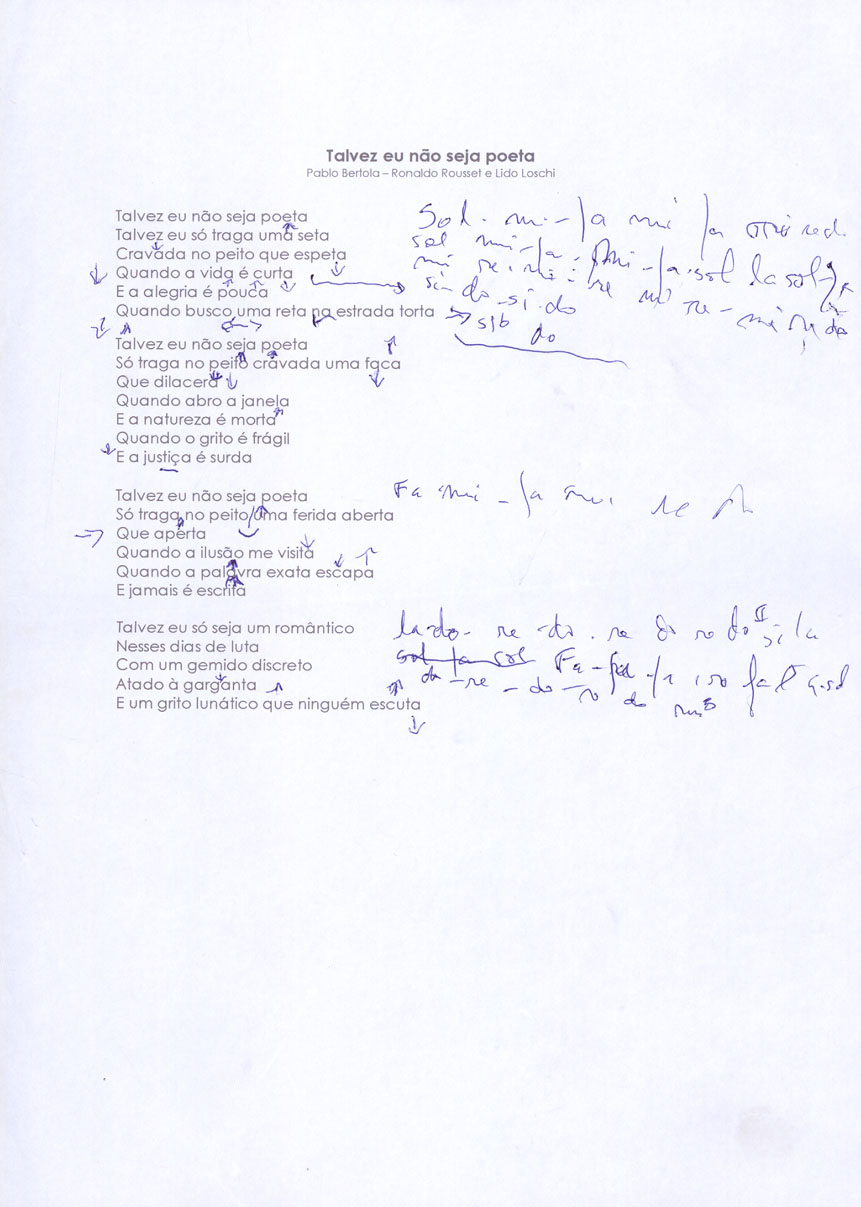 Talvez eu não seja poeta
Pablo Bertola – Ronaldo Rousset e Lido Loschi
Talvez eu não seja poeta
Talvez eu só traga uma seta
Cravada no peito que espeta
Quando a vida é curta
E a alegria é pouca
Quando busco uma reta na estrada torta
Sol. mi - fa mi fa
sol mi - fa - mi - fa - sol la sol
mi re - mi - re mi re - mi
si - do - si - do
sib do
Talvez eu não seja poeta
Só traga no peito cravada uma faca
Que dilacera
Quando abro a janela
E a natureza é morta
Quando o grito é frágil
E a justiça é surda
Talvez eu não seja poeta
Só traga no peito/uma ferida aberta
Que aperta
Quando a ilusão me visita
Quando a palavra exata escapa
E jamais é escrita
Fa mi - fa mi re
Talvez eu só seja um romântico
Nesses dias de luta
Com um gemido discreto
Atado à garganta
E um grito lunático que ninguém escuta
la - do - re - do - re do re do si la
sol fa sol Fa - fa
do - re - do - re do